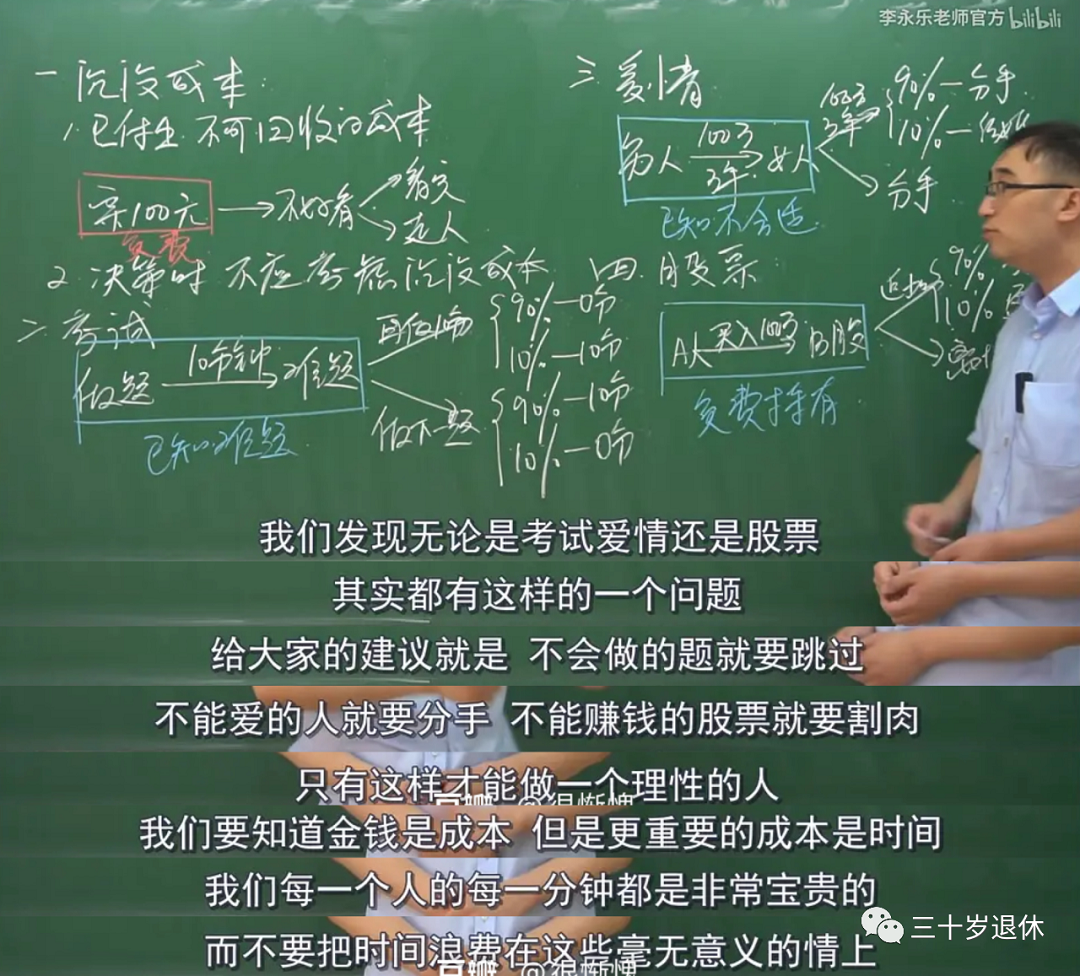 李永乐老师官方 bilibili
一 沉没成本：
1. 已付出 不可回收的成本
票100元 → 不好看
看完
走人
免费
2. 决策时 不应考虑沉没成本
二 考试
做题 10分钟 难题
已知难题
再做10分
90%—0分
10%—10分
做下一题
90%—10分
10%—0分
三 爱情
男人 100万 3年 女人
已知不合适
100万
3年
90%—分手
10%
分手
四 股票：
A人 买入100万 B股
免费持有
90%
10%
我们发现无论是考试爱情还是股票
其实都有这样的一个问题
给大家的建议就是 不会做的题就要跳过
不能爱的人就要分手 不能赚钱的股票就要割肉
只有这样才能做一个理性的人
我们要知道金钱是成本 但是更重要的成本是时间
我们每一个人的每一分钟都是非常宝贵的
而不要把时间浪费在这些毫无意义的情上
三十岁退休